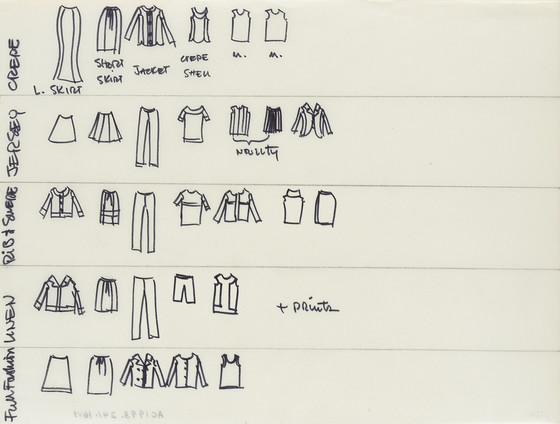 CREPE
L. SKIRT
SHORT
SKIRT
JACKET
CREPE
SHELL
M.
M.
JERSEY
NOVELTY
RIB & SUEDE
LINEN
+ PRINTS
Full Fashion